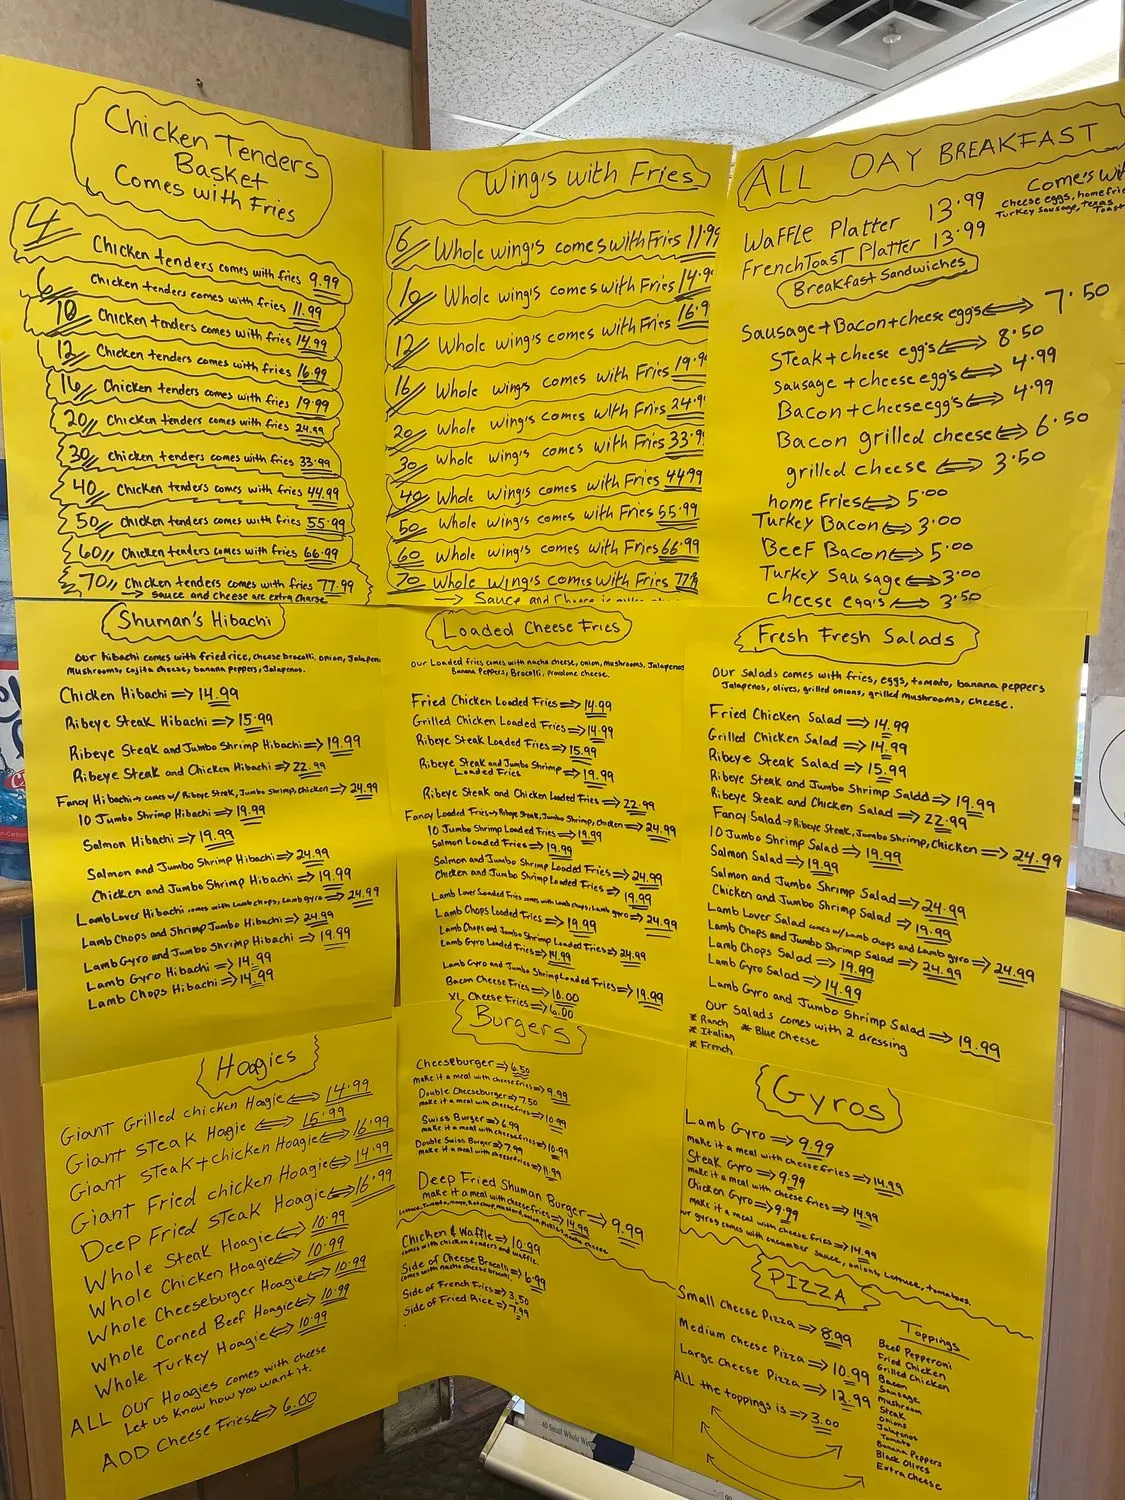 Chicken Tenders
Basket
Comes with Fries
4 Chicken tenders comes with fries 9.99
6 Chicken tenders comes with fries 11.99
10 Chicken tenders comes with fries 14.99
12 Chicken tenders comes with fries 16.99
16 Chicken tenders comes with fries 19.99
20 Chicken tenders comes with fries 24.99
30 Chicken tenders comes with fries 33.99
40 Chicken tenders comes with fries 44.99
50 Chicken tenders comes with fries 55.99
60 Chicken tenders comes with fries 66.99
70 Chicken tenders comes with fries 77.99
→ sauce and cheese are extra charge
Wing's with Fries
6 Whole wing's comes with Fries 11.99
10 Whole wing's comes with Fries 14.9
12 Whole wing's comes with Fries 16.9
16 Whole wing's comes with Fries 19.9
20 Whole wing's comes with Fries 24.9
30 Whole wing's comes with Fries 33.9
40 Whole wing's comes with Fries 44.99
50 Whole wing's comes with Fries 55.99
60 Whole wing's comes with Fries 66.99
70 Whole wing's comes with Fries 77.
→ Sauce and Cheese is
ALL DAY BREAKFAST
Waffle Platter 13.99
French Toast Platter 13.99
Comes wit
cheese eggs, homefrie
Turkey Sausage, Texas
Toast
Breakfast Sandwiches
Sausage+Bacon+cheese eggs⇔ 7.50
Steak+cheese egg's⇔ 8.50
sausage+cheese egg's⇔ 4.99
Bacon+cheese egg's⇔ 4.99
Bacon grilled cheese⇔ 6.50
grilled cheese ⇔ 3.50
home fries⇔ 5.00
Turkey Bacon⇔ 3.00
Beef Bacon⇔ 5.00
Turkey Sausage⇔ 3.00
cheese egg's ⇔ 3.50
Shuman's Hibachi
Our hibachi comes with fried rice, cheese brocolli, onion, Jalapen
Mushrooms, cojita cheese, banana peppers, Jalapenos.
Chicken Hibachi⇒ 14.99
Ribeye Steak Hibachi⇒ 15.99
Ribeye Steak and Jumbo Shrimp Hibachi⇒ 19.99
Ribeye Steak and Chicken Hibachi⇒ 22.99
Fancy Hibachi→ comes w/ Ribeye Steak, Jumbo Shrimp, Chicken⇒ 24.99
10 Jumbo Shrimp Hibachi⇒ 19.99
Salmon Hibachi⇒ 19.99
Salmon and Jumbo Shrimp Hibachi⇒ 24.99
Chicken and Jumbo Shrimp Hibachi⇒ 19.99
Lamb Lover Hibachi comes with Lamb chops, Lamb gyro⇒ 24.99
Lamb Chops and Shrimp Jumbo Hibachi⇒ 24.99
Lamb Gyro and Jumbo Shrimp Hibachi⇒ 19.99
Lamb Gyro Hibachi⇒ 14.99
Lamb Chops Hibachi⇒ 14.99
Loaded Cheese Fries
Our Loaded fries comes with nacho cheese, onion, mushrooms, Jalapenos
Banana Peppers, Brocolli, provolone cheese.
Fried Chicken Loaded Fries⇒ 14.99
Grilled Chicken Loaded Fries⇒ 14.99
Ribeye Steak Loaded Fries⇒ 15.99
Ribeye Steak and Jumbo Shrimp
Loaded Fries ⇒ 19.99
Ribeye Steak and Chicken Loaded Fries ⇒ 22.99
Fancy Loaded Fries→ Ribeye Steak, Jumbo Shrimp, Chicken⇒ 24.99
10 Jumbo Shrimp Loaded Fries⇒ 19.99
Salmon Loaded Fries⇒ 19.99
Salmon and Jumbo Shrimp Loaded Fries⇒ 24.99
Chicken and Jumbo Shrimp Loaded Fries⇒ 19.99
Lamb Lover Loaded Fries comes with Lamb chops, Lamb gyro⇒ 24.99
Lamb Chops Loaded Fries⇒ 19.99
Lamb Chops and Jumbo Shrimp Loaded Fries⇒ 24.99
Lamb Gyro Loaded Fries⇒ 14.99
Lamb Gyro and Jumbo Shrimp Loaded Fries⇒ 19.99
Bacon Cheese Fries⇒ 10.00
XL Cheese Fries⇒ 6.00
Fresh Fresh Salads
Our Salads comes with fries, eggs, tomato, banana peppers
Jalapenos, olives, grilled onions, grilled mushrooms, cheese.
Fried Chicken Salad⇒ 14.99
Grilled Chicken Salad⇒ 14.99
Ribeye Steak Salad⇒ 15.99
Ribeye Steak and Jumbo Shrimp Salad⇒ 19.99
Ribeye Steak and Chicken Salad⇒ 22.99
Fancy Salad→ Ribeye Steak, Jumbo Shrimp, Chicken ⇒ 24.99
10 Jumbo Shrimp Salad⇒ 19.99
Salmon Salad⇒ 19.99
Salmon and Jumbo Shrimp Salad⇒ 24.99
Chicken and Jumbo Shrimp Salad ⇒ 19.99
Lamb Lover Salad comes w/ Lamb chops and Lamb gyro ⇒ 24.99
Lamb Chops and Jumbo Shrimp Salad⇒ 24.99
Lamb Chops Salad⇒ 19.99
Lamb Gyro Salad⇒ 14.99
Lamb Gyro and Jumbo Shrimp Salad⇒ 19.99
Our Salads comes with 2 dressing
* Ranch * Blue Cheese
* Italian
* French
Hoagies
Giant Grilled chicken Hoagie⇔ 14.99
Giant Steak Hoagie ⇔ 15.99
Giant Steak+chicken Hoagie⇔ 16.99
Giant Fried chicken Hoagie⇔ 14.99
Deep Fried Steak Hoagie⇔ 16.99
Whole Steak Hoagie⇔ 10.99
Whole Chicken Hoagie⇔ 10.99
Whole Cheeseburger Hoagie⇔ 10.99
Whole Corned Beef Hoagie⇔ 10.99
Whole Turkey Hoagie⇔ 10.99
ALL Our Hoagies comes with cheese
Let us know how you want it.
ADD Cheese Fries⇔ 6.00
Burgers
Cheeseburger⇒ 6.50
make it a meal with cheese fries⇒ 9.99
Double Cheeseburger⇒ 7.50
make it a meal with cheese fries⇒ 10.99
Swiss Burger⇒ 6.99
make it a meal with cheese fries⇒ 10.99
Double Swiss Burger⇒ 7.99
make it a meal with cheese fries⇒ 11.99
Deep Fried Shuman Burger⇒ 9.99
make it a meal with cheese fries⇒ 14.99
Lettuce, Tomato, mayo, Ketchup, mustard, onion, pickles, nacho cheese
Chicken & Waffle⇒ 10.99
comes with chicken tenders and waffle.
Side of Cheese Brocolli⇒ 6.99
comes with nacho cheese brocolli.
Side of French Fries⇒ 3.50
Side of Fried Rice⇒ 7.99
Gyros
Lamb Gyro⇒ 9.99
make it a meal with cheese fries⇒ 14.99
Steak Gyro⇒ 9.99
make it a meal with cheese fries⇒ 14.99
Chicken Gyro⇒ 9.99
make it a meal with cheese fries⇒ 14.99
ur gyros comes with cucumber sauce, onions, Lettuce, tomatoes.
PIZZA
Small Cheese Pizza⇒ 8.99
Medium Cheese Pizza⇒ 10.99
Large Cheese Pizza⇒ 12.99
ALL the toppings is⇒ 3.00
Toppings
Beef Pepperoni
Fried Chicken
Grilled Chicken
Bacon
Sausage
Mushroom
Steak
Onions
Jalapenos
Tomato
Banana Peppers
Black Olives
Extra Cheese
40 Small Whole Win